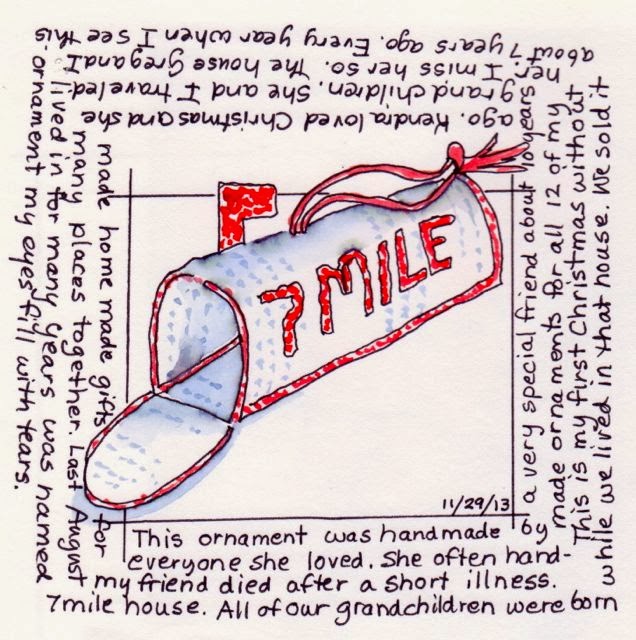 7 MILE
11/29/13
This ornament was handmade
by a very special friend about 10 years
ago. Kendra loved Christmas and she
made home made gifts for
everyone she loved. She often hand-
made ornaments for all 12 of my
grandchildren. She and I traveled
many places together. Last August
my friend died after a short illness.
This is my first Christmas without
her. I miss her so. The house Greg and I
lived in for many years was named
7mile house. All of our grandchildren were born
while we lived in that house. We sold it
about 7 years ago. Every year when I see this
ornament my eyes fill with tears.